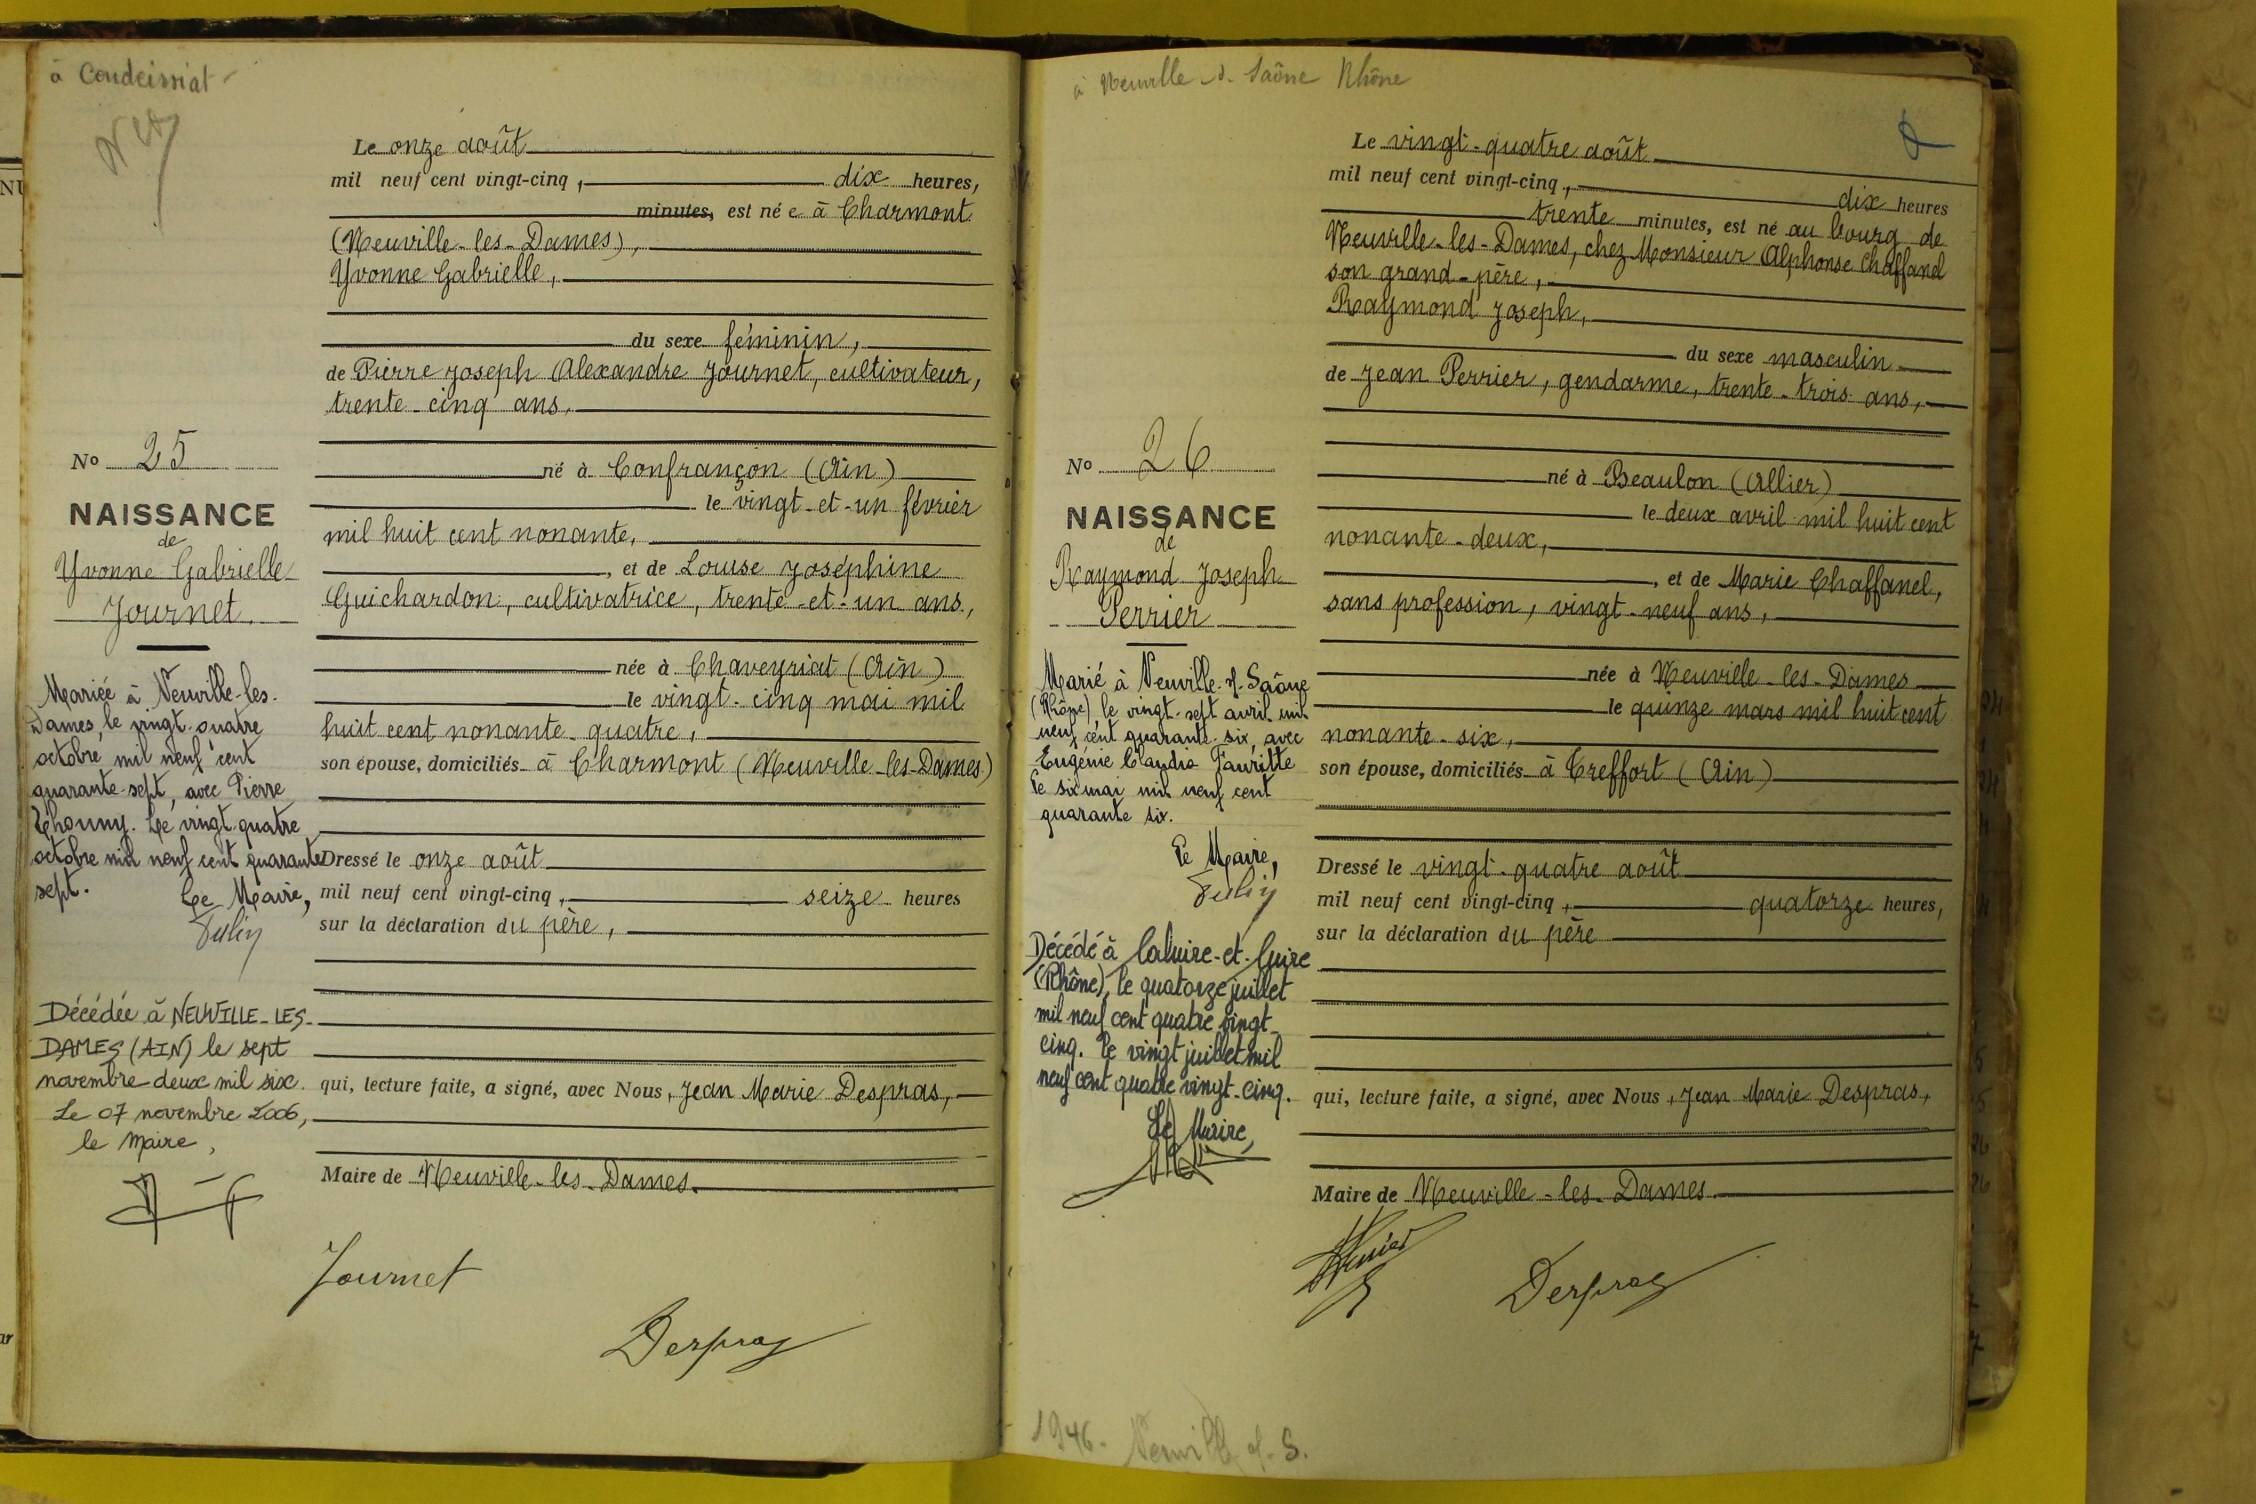 à Condeissiat
Le onze août
mil neuf cent vingt-cinq, dix heures,
minutes, est née à Charmont
(Neuville-les-Dames),
Yvonne Gabrielle,
du sexe féminin,
de Pierre Joseph Alexandre Journet, cultivateur,
trente-cinq ans,
né à Confrançon (Ain)
le vingt-et-un février
mil huit cent nonante,
, et de Louise Joséphine
Guichardon, cultivatrice, trente-et-un ans,
née à Chaveyriat (Ain)
le vingt-cinq mai mil
huit cent nonante-quatre,
son épouse, domiciliés à Charmont (Neuville-les-Dames)
Dressé le onze août
mil neuf cent vingt-cinq, seize heures
sur la déclaration du père,
qui, lecture faite, a signé, avec Nous, Jean Marie Despras,
Maire de Neuville-les-Dames.
Journet
Despras
No 25
NAISSANCE
de
Yvonne Gabrielle
Journet.
Mariée à Neuville-les-
Dames, le vingt-quatre
octobre mil neuf cent
quarante-sept, avec Pierre
Thonny. Le vingt-quatre
octobre mil neuf cent quarante
sept.
Le Maire,
Décédée à NEUVILLE-LES-
DAMES (AIN) le sept
novembre deux mil six.
Le 07 novembre 2006,
le Maire,
à Neuville-s-Saône Rhône
Le vingt-quatre août
mil neuf cent vingt-cinq, dix heures
trente minutes, est né au bourg de
Neuville-les-Dames, chez Monsieur Alphonse Chaffanel
son grand-père,
Raymond Joseph,
du sexe masculin
de Jean Perrier, gendarme, trente-trois ans,
né à Beaulon (Allier)
le deux avril mil huit cent
nonante-deux,
, et de Marie Chaffanel,
sans profession, vingt-neuf ans,
née à Neuville-les-Dames
le quinze mars mil huit cent
nonante-six,
son épouse, domiciliés à Treffort (Ain)
Dressé le vingt-quatre août
mil neuf cent vingt-cinq, quatorze heures,
sur la déclaration du père
qui, lecture faite, a signé, avec Nous, Jean Marie Despras,
Maire de Neuville-les-Dames
Despras
No 26
NAISSANCE
de
Raymond Joseph
Perrier
Marié à Neuville-s/-Saône
(Rhône), le vingt-sept avril mil
neuf cent quarante-six, avec
Eugénie Claudia Fauritte
Le six mai mil neuf cent
quarante six.
Le Maire,
Décédé à Caluire-et-Cuire
(Rhône), le quatorze juillet
mil neuf cent quatre vingt-
cinq. Le vingt juillet mil
neuf cent quatre vingt-cinq.
Le Maire,
1946. Neuville s/-S.